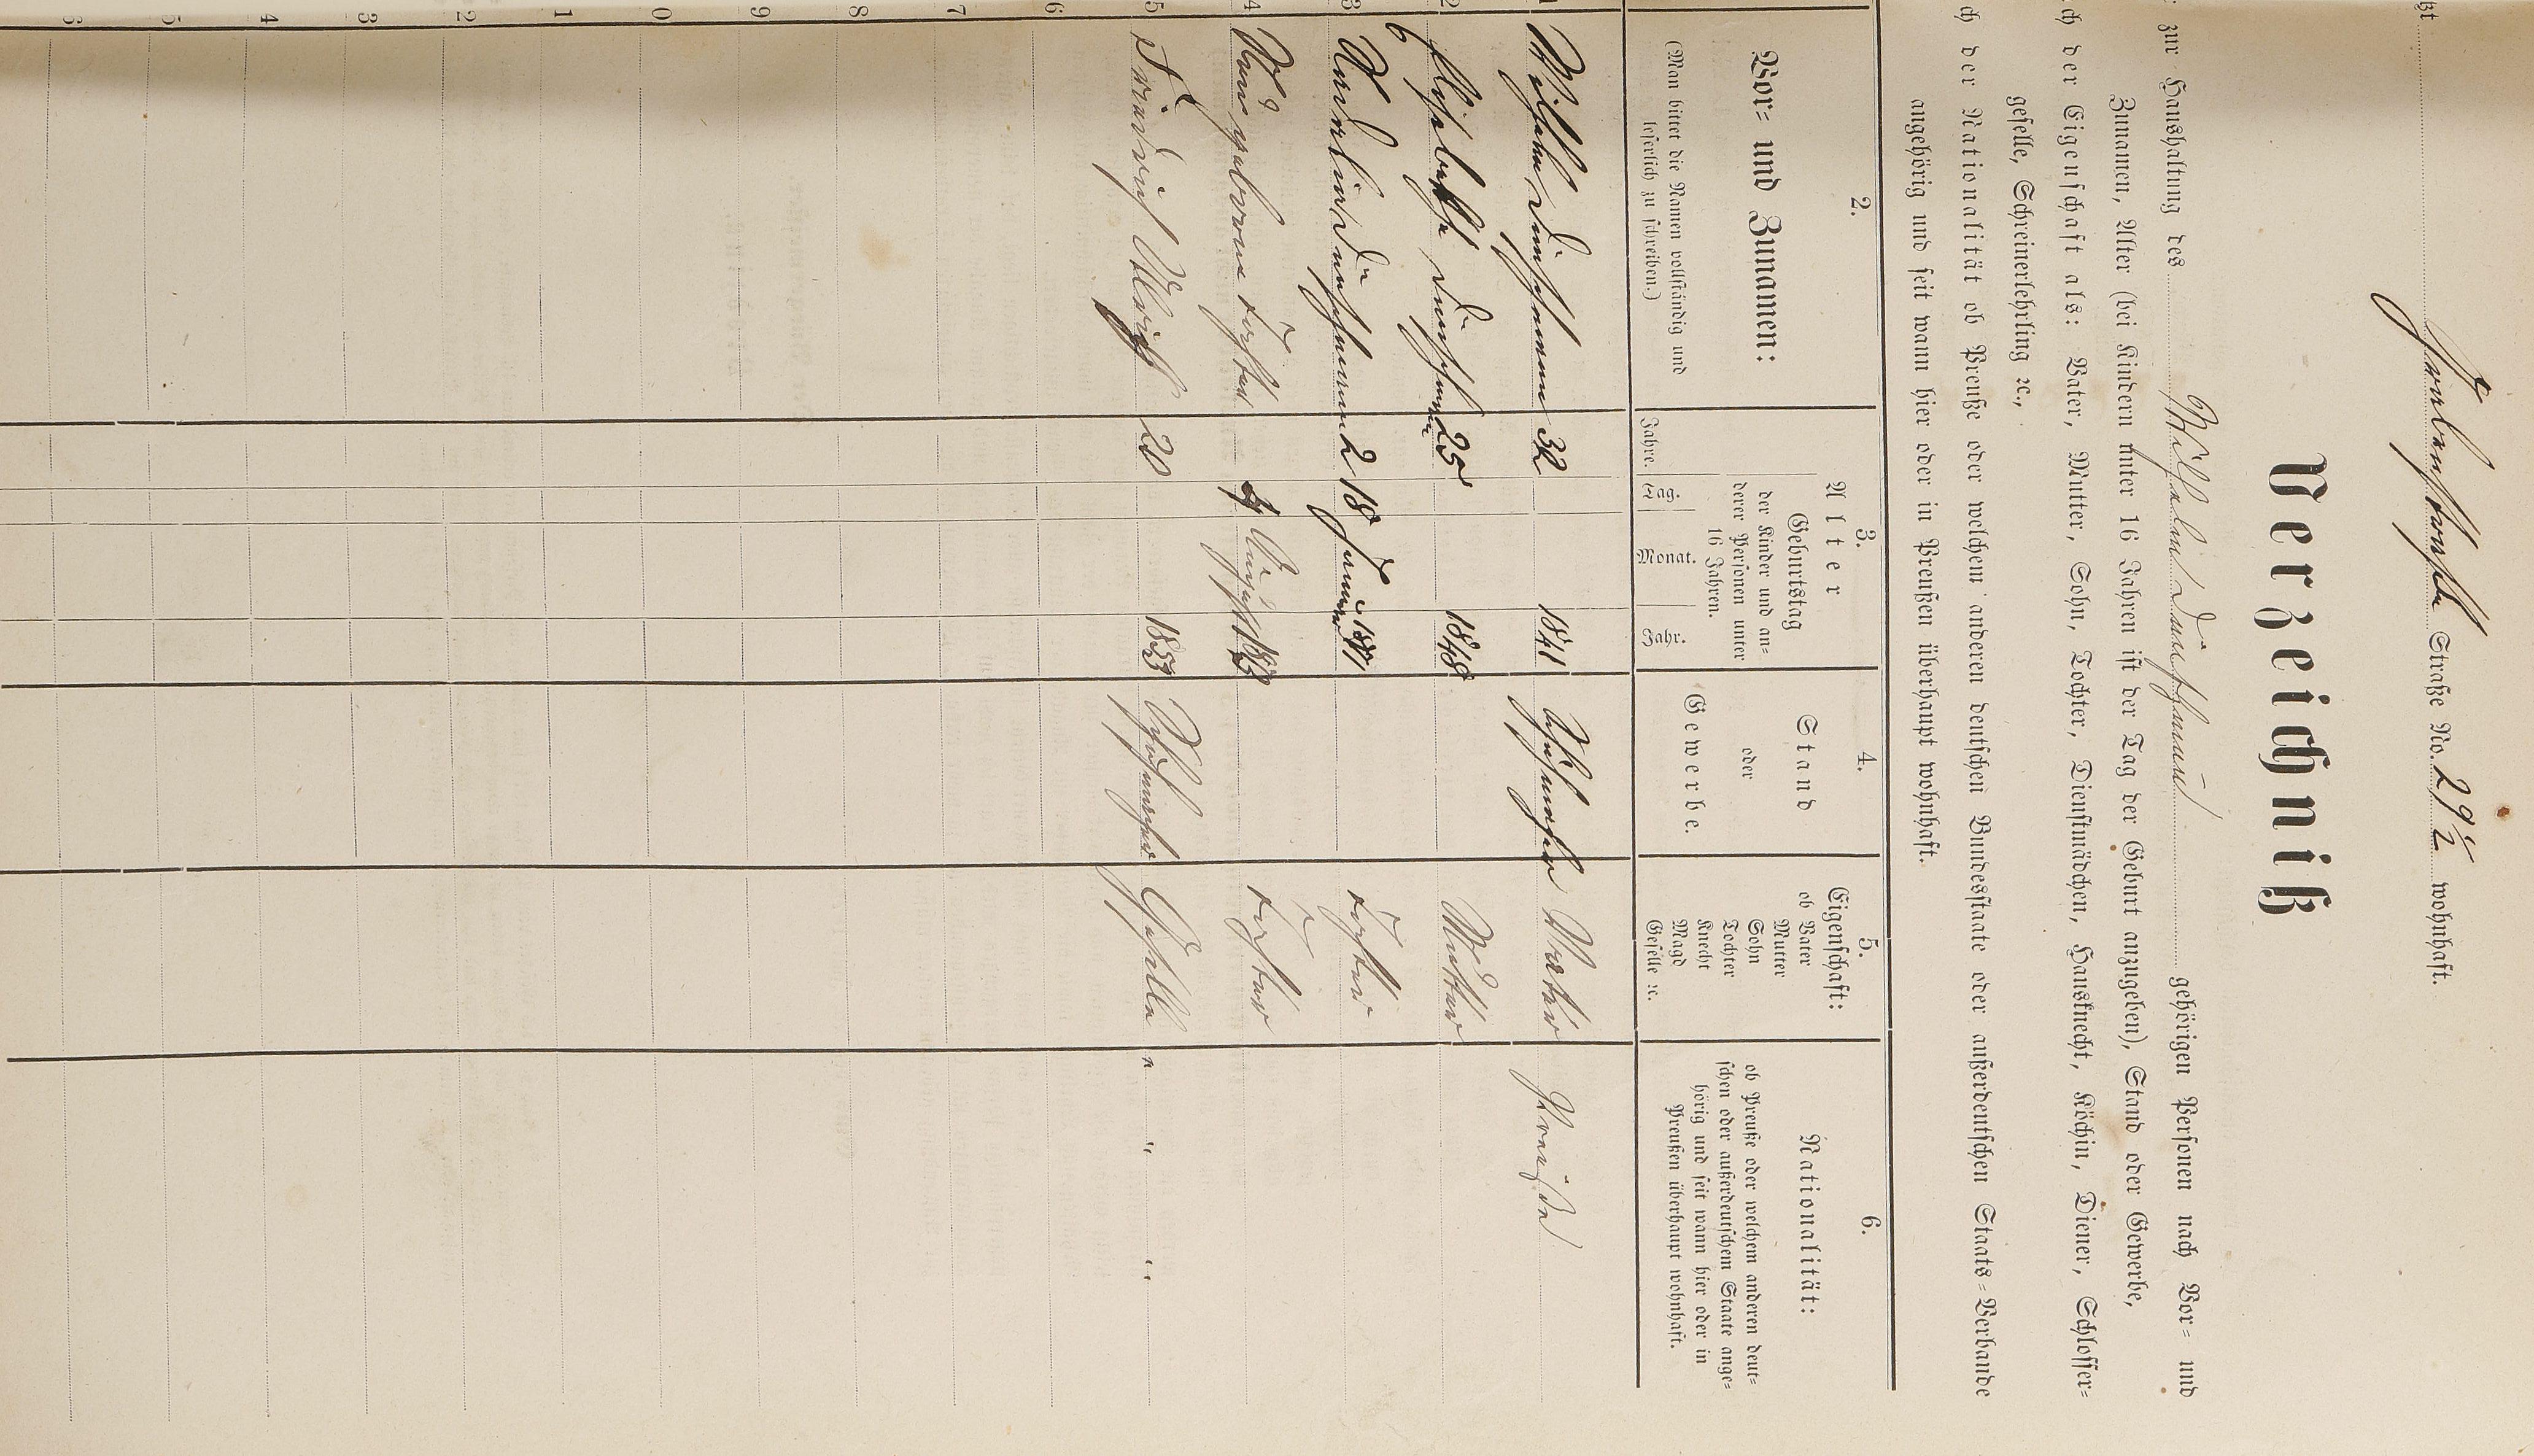 zt Farbenstraße Straße No. 29 1/2 wohnhaft.
Verzeichniß
zur Haushaltung des Wilhelm gehörigen Personen nach Vor- und
Zunamen, Alter (bei Kindern unter 16 Jahren ist der Tag der Geburt anzugeben), Stand oder Gewerbe,
ch der Eigenschaft als: Vater, Mutter, Sohn, Tochter, Dienstmädchen, Hausknecht, Köchin, Diener, Schlosser-
geselle, Schreinerlehrling ꝛc.,
ch der Nationalität ob Preuße oder welchem anderen deutschen Bundesstaate oder außerdeutschen Staats-Verbande
angehörig und seit wann hier oder in Preußen überhaupt wohnhaft.
2. 3. 4. 5. 6.
Vor- und Zunamen:
(Man bittet die Namen vollständig und
leserlich zu schreiben.)
Alter
Geburtstag
der Kinder und an-
derer Personen unter
16 Jahren.
Jahre. Tag. Monat. Jahr.
Stand
oder
Gewerbe.
Eigenschaft:
ob Vater
Mutter
Sohn
Tochter
Knecht
Magd
Geselle ꝛc.
Nationalität:
ob Preuße oder welchem anderen deut-
schen oder außerdeutschem Staate ange-
hörig und seit wann hier oder in
Preußen überhaupt wohnhaft.
1 Wilhelm 32 1841 Schuhmacher Vater Preuße
2 Elisabethe 25 1848 Mutter
3 2 18 Januar 1871 Tochter
4 Neugeborene Tochter 4 August 1873 Tochter
5 Friedrich Ullrich 20 1853 Schuhmacher Geselle " " "
6
7
8
9
0
1
2
3
4
5
6